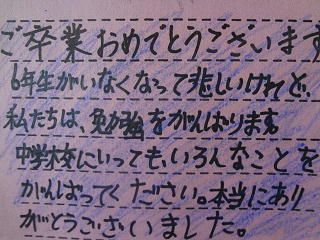 ご卒業おめでとうございます
6年生がいなくなって悲しいけれど、
私たちは、勉強をがんばります。
中学校にいっても、いろんなことを
がんばってください。本当にあり
がとうございました。